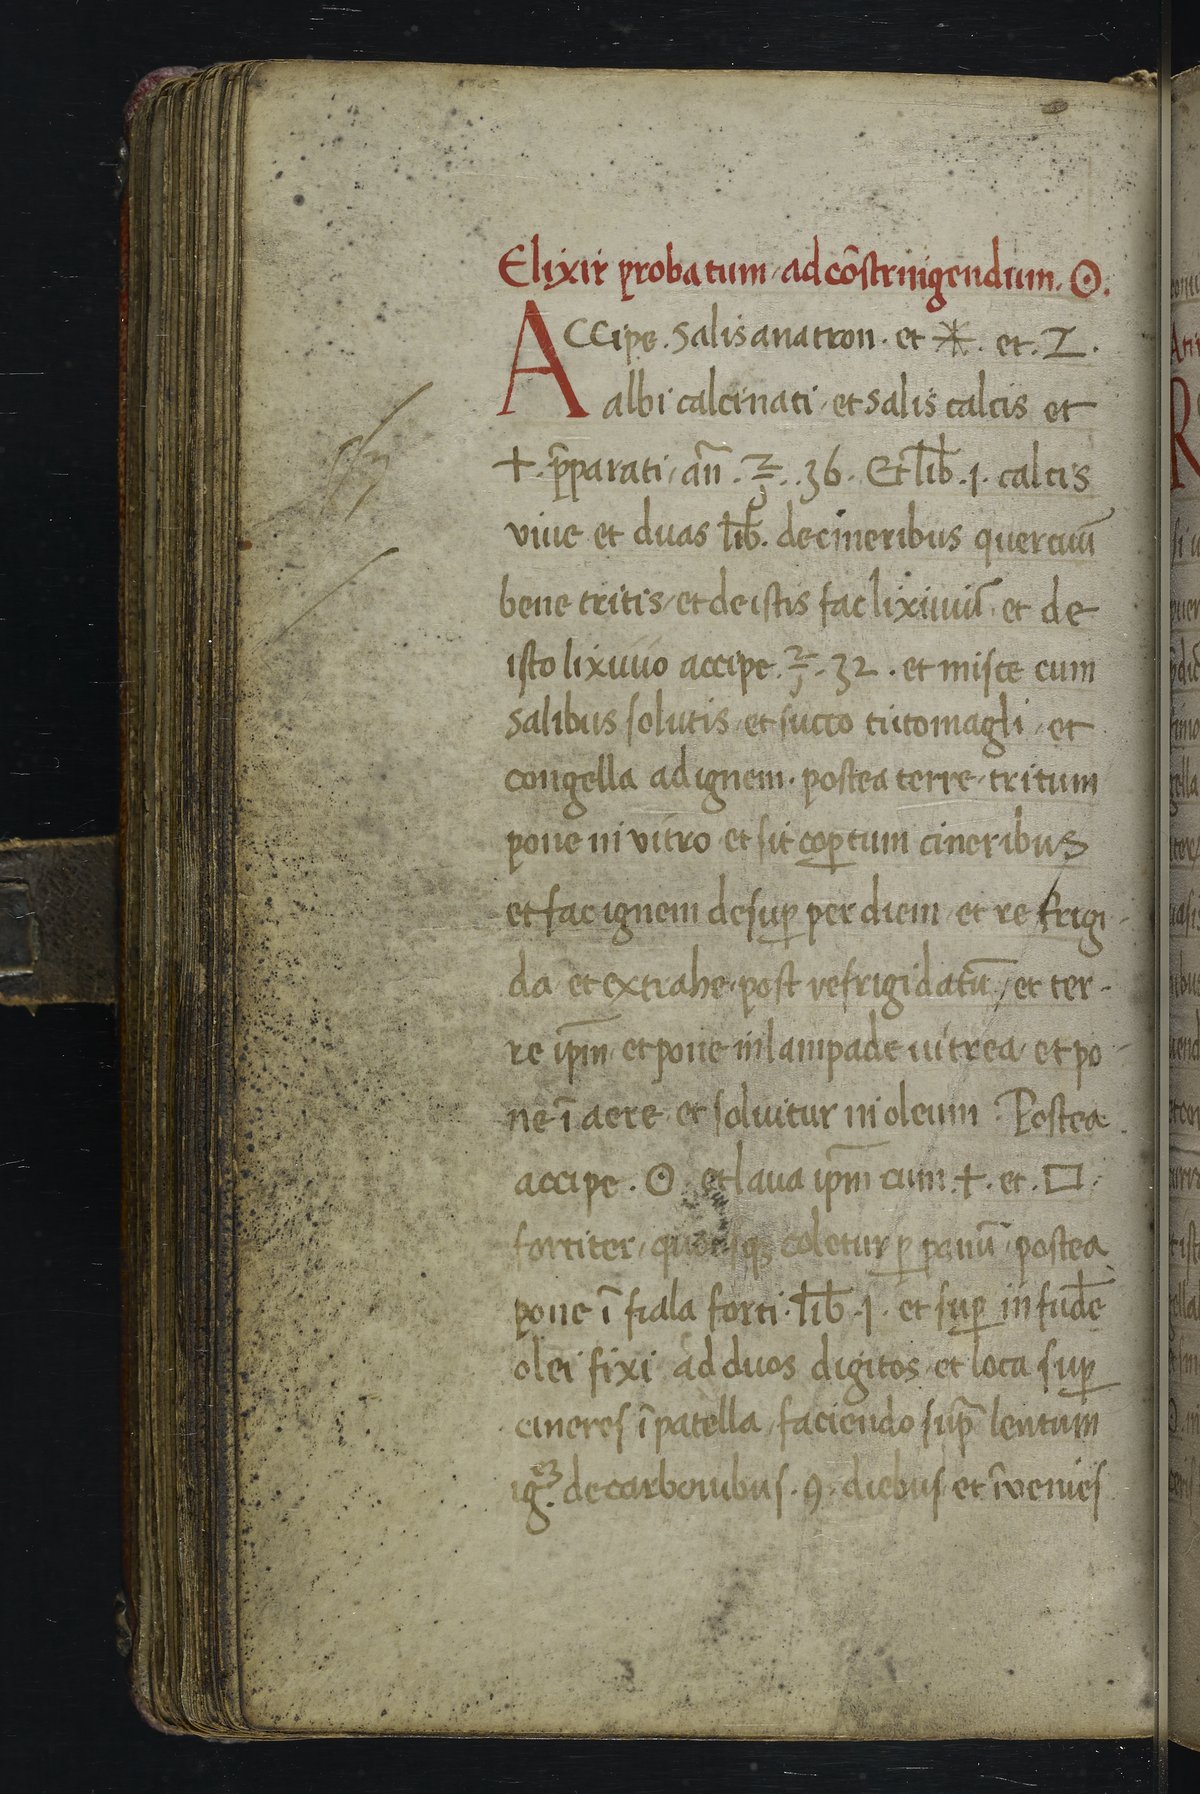 Elixir probatum ad cõstringendum. ☉.
Accipe. Salis anatron. et ✳. et. Z.
albi calcinati et salis calcis et
+ p̃parati añ. ℥. 36. Et lib̄. 1. calcis
viue et duas lib̄. de cineribus quercuũ
bene tritis et de istis fac lixiuiũ et de
isto lixiuio accipe. ℥. 32. et misce cum
salibus solutis et succo titomagli et
congella ad ignem. postea terre tritum
pone in vitro et sit coꝑtum cineribus
et fac ignem desuꝑ per diem et refrigi-
da et extrahe post refrigidatũ et ter-
re ip̃m et pone in lampade uitrea et po-
ne ĩ aere et soluitur in oleum. Postea
accipe. ☉. et laua ip̃m cum. +. et. □.
fortiter, ꝑ panũ postea
pone ĩ fiala forti. lib̄. 1. et suꝑ infude
olei fixi ad duos digitos et loca suꝑ
cineres ĩ patella faciendo sup̃ lentum
ig. de carbonibus. 9. diebus et ĩvenies